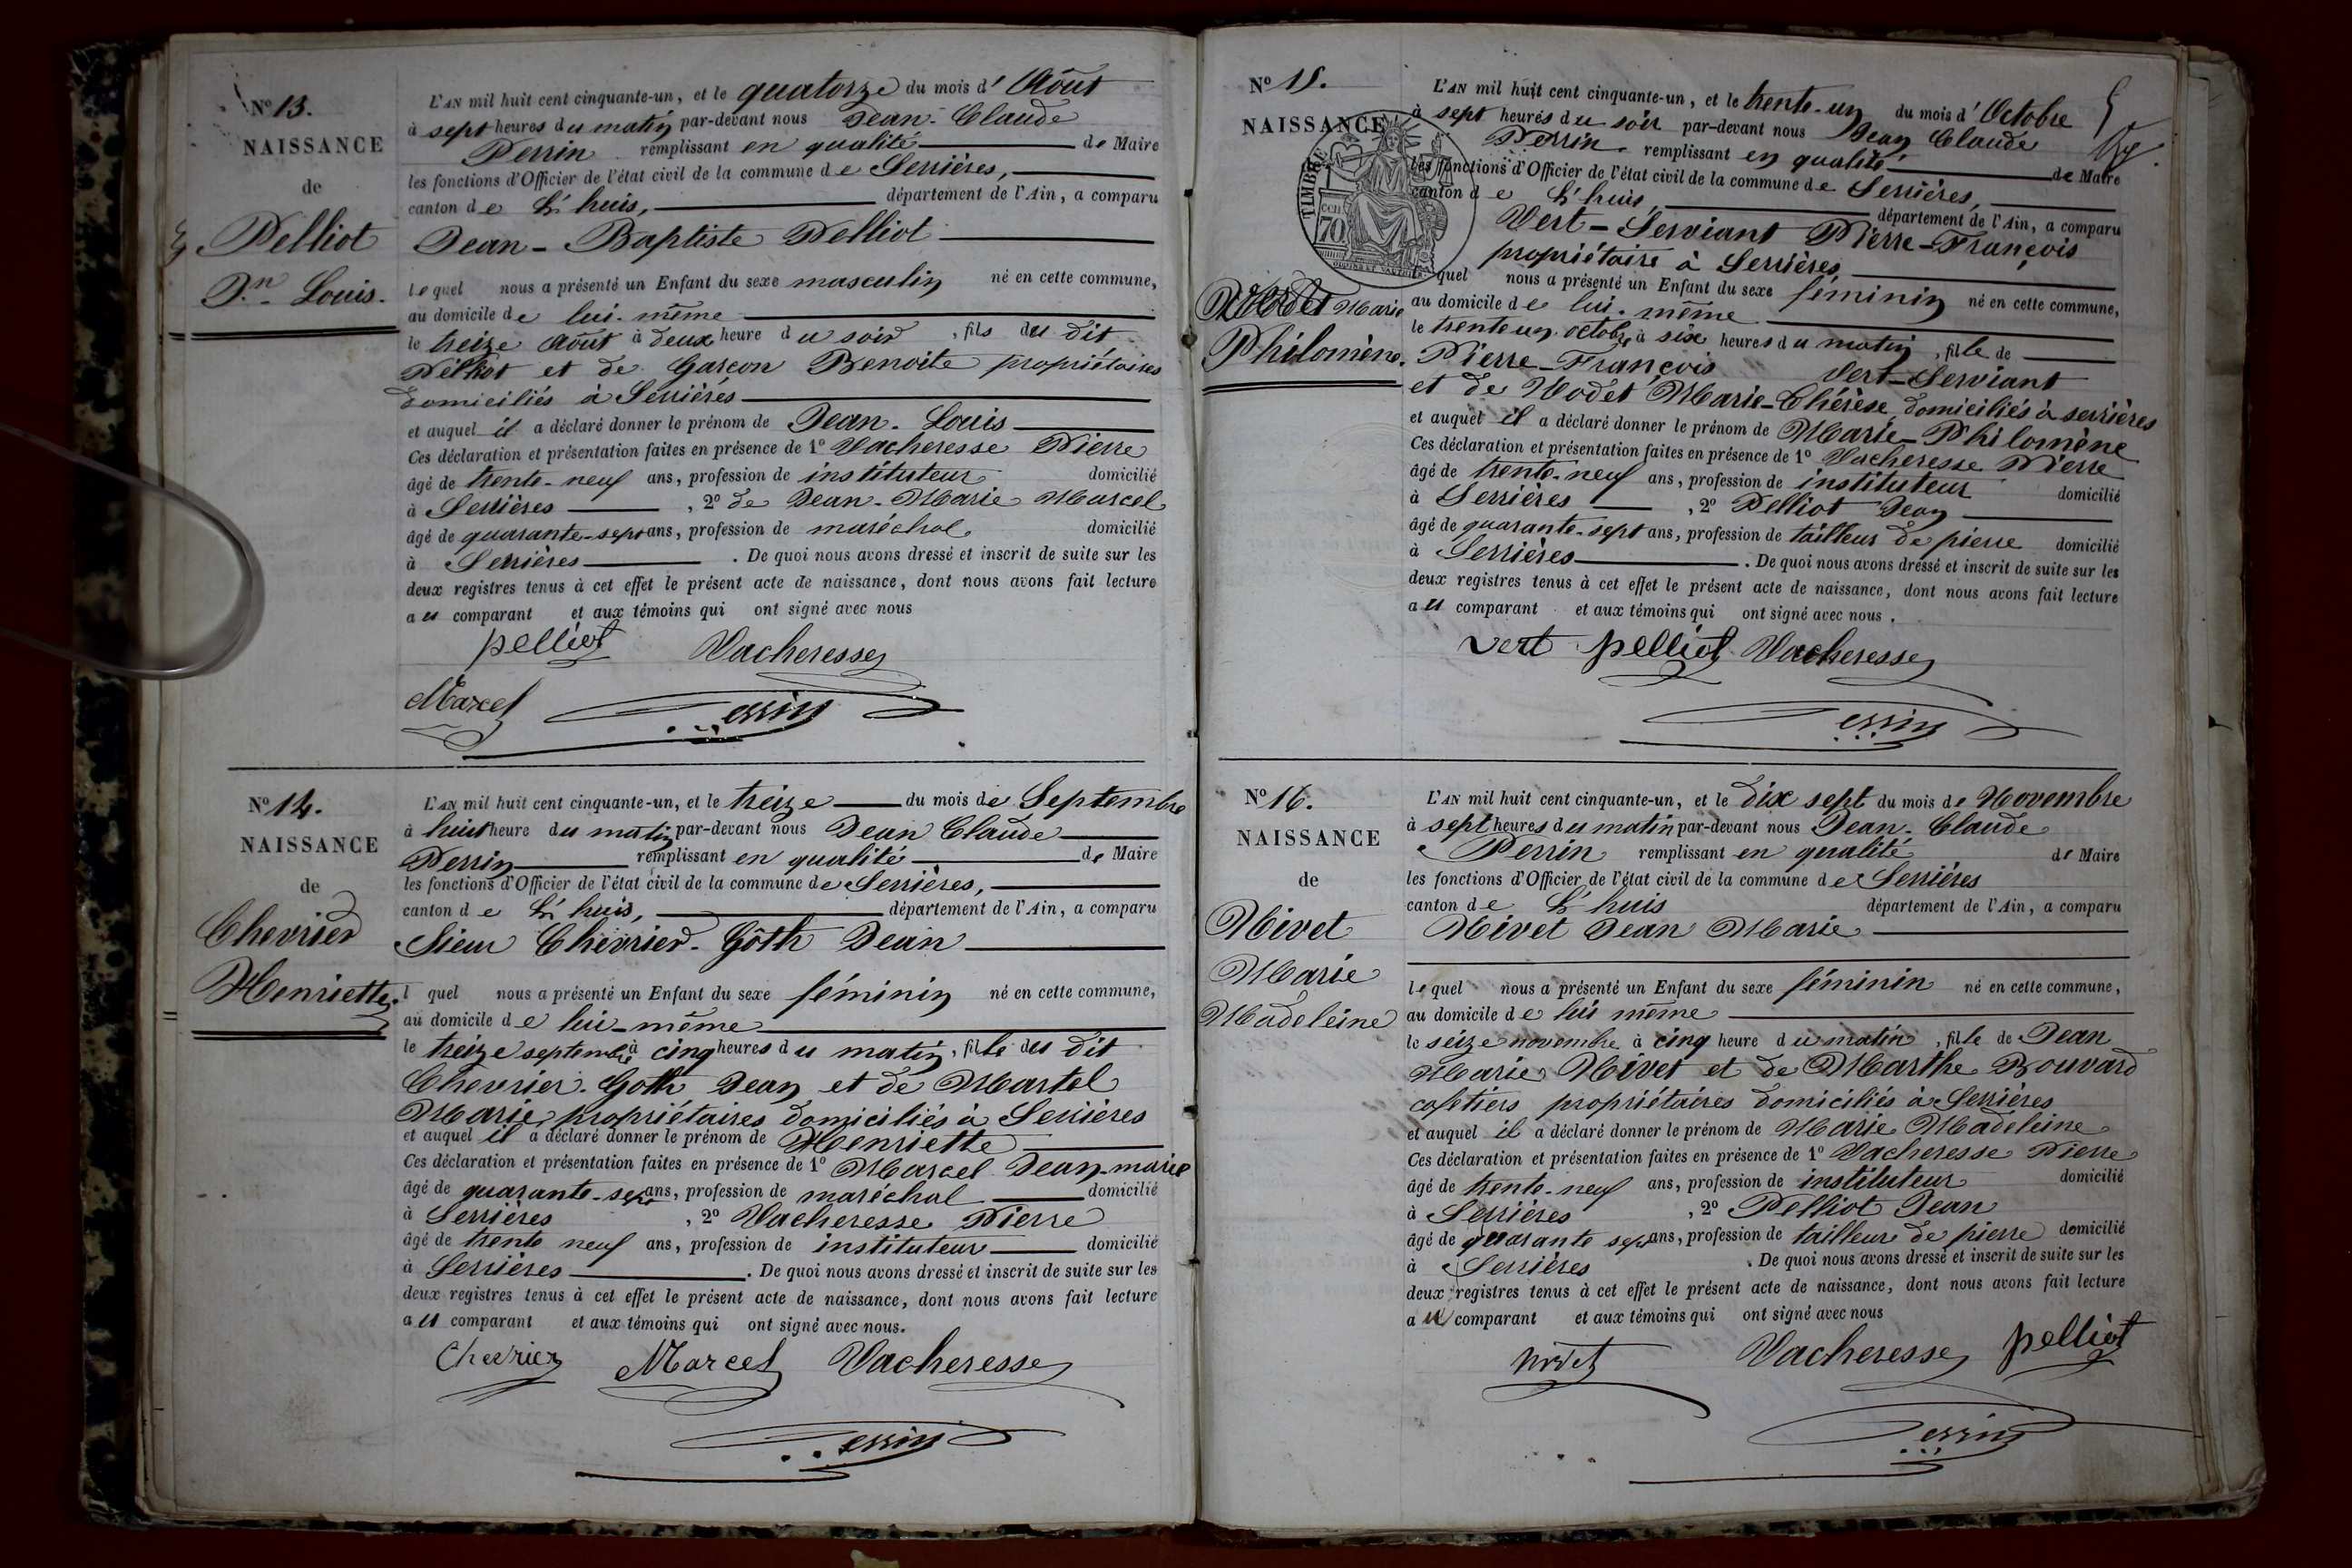 N° 13.
NAISSANCE
de
Pelliot
Jn. Louis.
L'AN mil huit cent cinquante-un, et le quatorze du mois d' Août
à sept heures du matin par-devant nous Jean-Claude
Perrin remplissant en qualité de Maire
les fonctions d'Officier de l'état civil de la commune de Serrières,
canton de L'huis, département de l'Ain, a comparu
Jean-Baptiste Pelliot
lequel nous a présenté un Enfant du sexe masculin né en cette commune,
au domicile de lui-même
le treize Août à deux heure du soir, fils du dit
Pelliot et de Garçon Benoite propriétaires
domiciliés à Serrières
et auquel il a déclaré donner le prénom de Jean-Louis
Ces déclaration et présentation faites en présence de 1° Vacheresse Pierre
âgé de trente-neuf ans, profession de instituteur domicilié
à Serrières, 2° de Jean-Marie Marcel
âgé de quarante-sept ans, profession de maréchal domicilié
à Serrières. De quoi nous avons dressé et inscrit de suite sur les
deux registres tenus à cet effet le présent acte de naissance, dont nous avons fait lecture
au comparant et aux témoins qui ont signé avec nous
pelliot Vacheresse
Marcel Perrin
N° 14.
NAISSANCE
de
Chevrier
Henriette.
L'AN mil huit cent cinquante-un, et le treize du mois de Septembre
à huit heure du matin par-devant nous Jean Claude
Perrin remplissant en qualité de Maire
les fonctions d'Officier de l'état civil de la commune de Serrières,
canton de L'huis, département de l'Ain, a comparu
Sieur Chevrier-Gôth Jean
l quel nous a présenté un Enfant du sexe féminin né en cette commune,
au domicile de lui-même
le treize septembre à cinq heures du matin, fille du dit
Chevrier-Goth Jean et de Martel
Marie propriétaires domiciliés à Serrières
et auquel il a déclaré donner le prénom de Henriette
Ces déclaration et présentation faites en présence de 1° Marcel Jean-marie
âgé de quarante-sept ans, profession de maréchal domicilié
à Serrières, 2° Vacheresse Pierre
âgé de trente neuf ans, profession de instituteur domicilié
à Serrières. De quoi nous avons dressé et inscrit de suite sur les
deux registres tenus à cet effet le présent acte de naissance, dont nous avons fait lecture
au comparant et aux témoins qui ont signé avec nous.
Chevrier Marcel Vacheresse
Perrin
N° 15.
NAISSANCE
TIMBRE
70
Marie
Philomène.
L'AN mil huit cent cinquante-un, et le trente-un du mois d' Octobre
à sept heures du soir par-devant nous Jean Claude
Perrin remplissant en qualité de Maire
les fonctions d'Officier de l'état civil de la commune de Serrières,
canton de L'huis, département de l'Ain, a comparu
Vert-Serviant Pierre-François
propriétaire à Serrières
lequel nous a présenté un Enfant du sexe féminin né en cette commune,
au domicile de lui-même
le trente un octobre à six heures du matin, fille de
Pierre-François Vert-Serviant
et de Nodet Marie-Thérèse domiciliés à serrières
et auquel il a déclaré donner le prénom de Marie-Philomène
Ces déclaration et présentation faites en présence de 1° Vacheresse Pierre
âgé de trente-neuf ans, profession de instituteur domicilié
à Serrières, 2° Pelliot Jean
âgé de quarante-sept ans, profession de tailleur de pierre domicilié
à Serrières. De quoi nous avons dressé et inscrit de suite sur les
deux registres tenus à cet effet le présent acte de naissance, dont nous avons fait lecture
au comparant et aux témoins qui ont signé avec nous.
Vert pelliot Vacheresse
Perrin
N° 16.
NAISSANCE
de
Nivet
Marie
Madeleine
L'AN mil huit cent cinquante-un, et le dix sept du mois de Novembre
à sept heures du matin par-devant nous Jean-Claude
Perrin remplissant en qualité de Maire
les fonctions d'Officier de l'état civil de la commune de Serrières
canton de L'huis département de l'Ain, a comparu
Nivet Jean Marie
lequel nous a présenté un Enfant du sexe féminin né en cette commune,
au domicile de lui même
le seize novembre à cinq heure du matin, fille de Jean
Marie Nivet et de Marthe Bouvard
cafetiers propriétaires domiciliés à Serrières
et auquel il a déclaré donner le prénom de Marie Madeleine
Ces déclaration et présentation faites en présence de 1° Vacheresse Pierre
âgé de trente-neuf ans, profession de instituteur domicilié
à Serrières, 2° Pelliot Jean
âgé de quarante sept ans, profession de tailleur de pierre domicilié
à Serrières. De quoi nous avons dressé et inscrit de suite sur les
deux registres tenus à cet effet le présent acte de naissance, dont nous avons fait lecture
au comparant et aux témoins qui ont signé avec nous
Nivet Vacheresse pelliot
Perrin